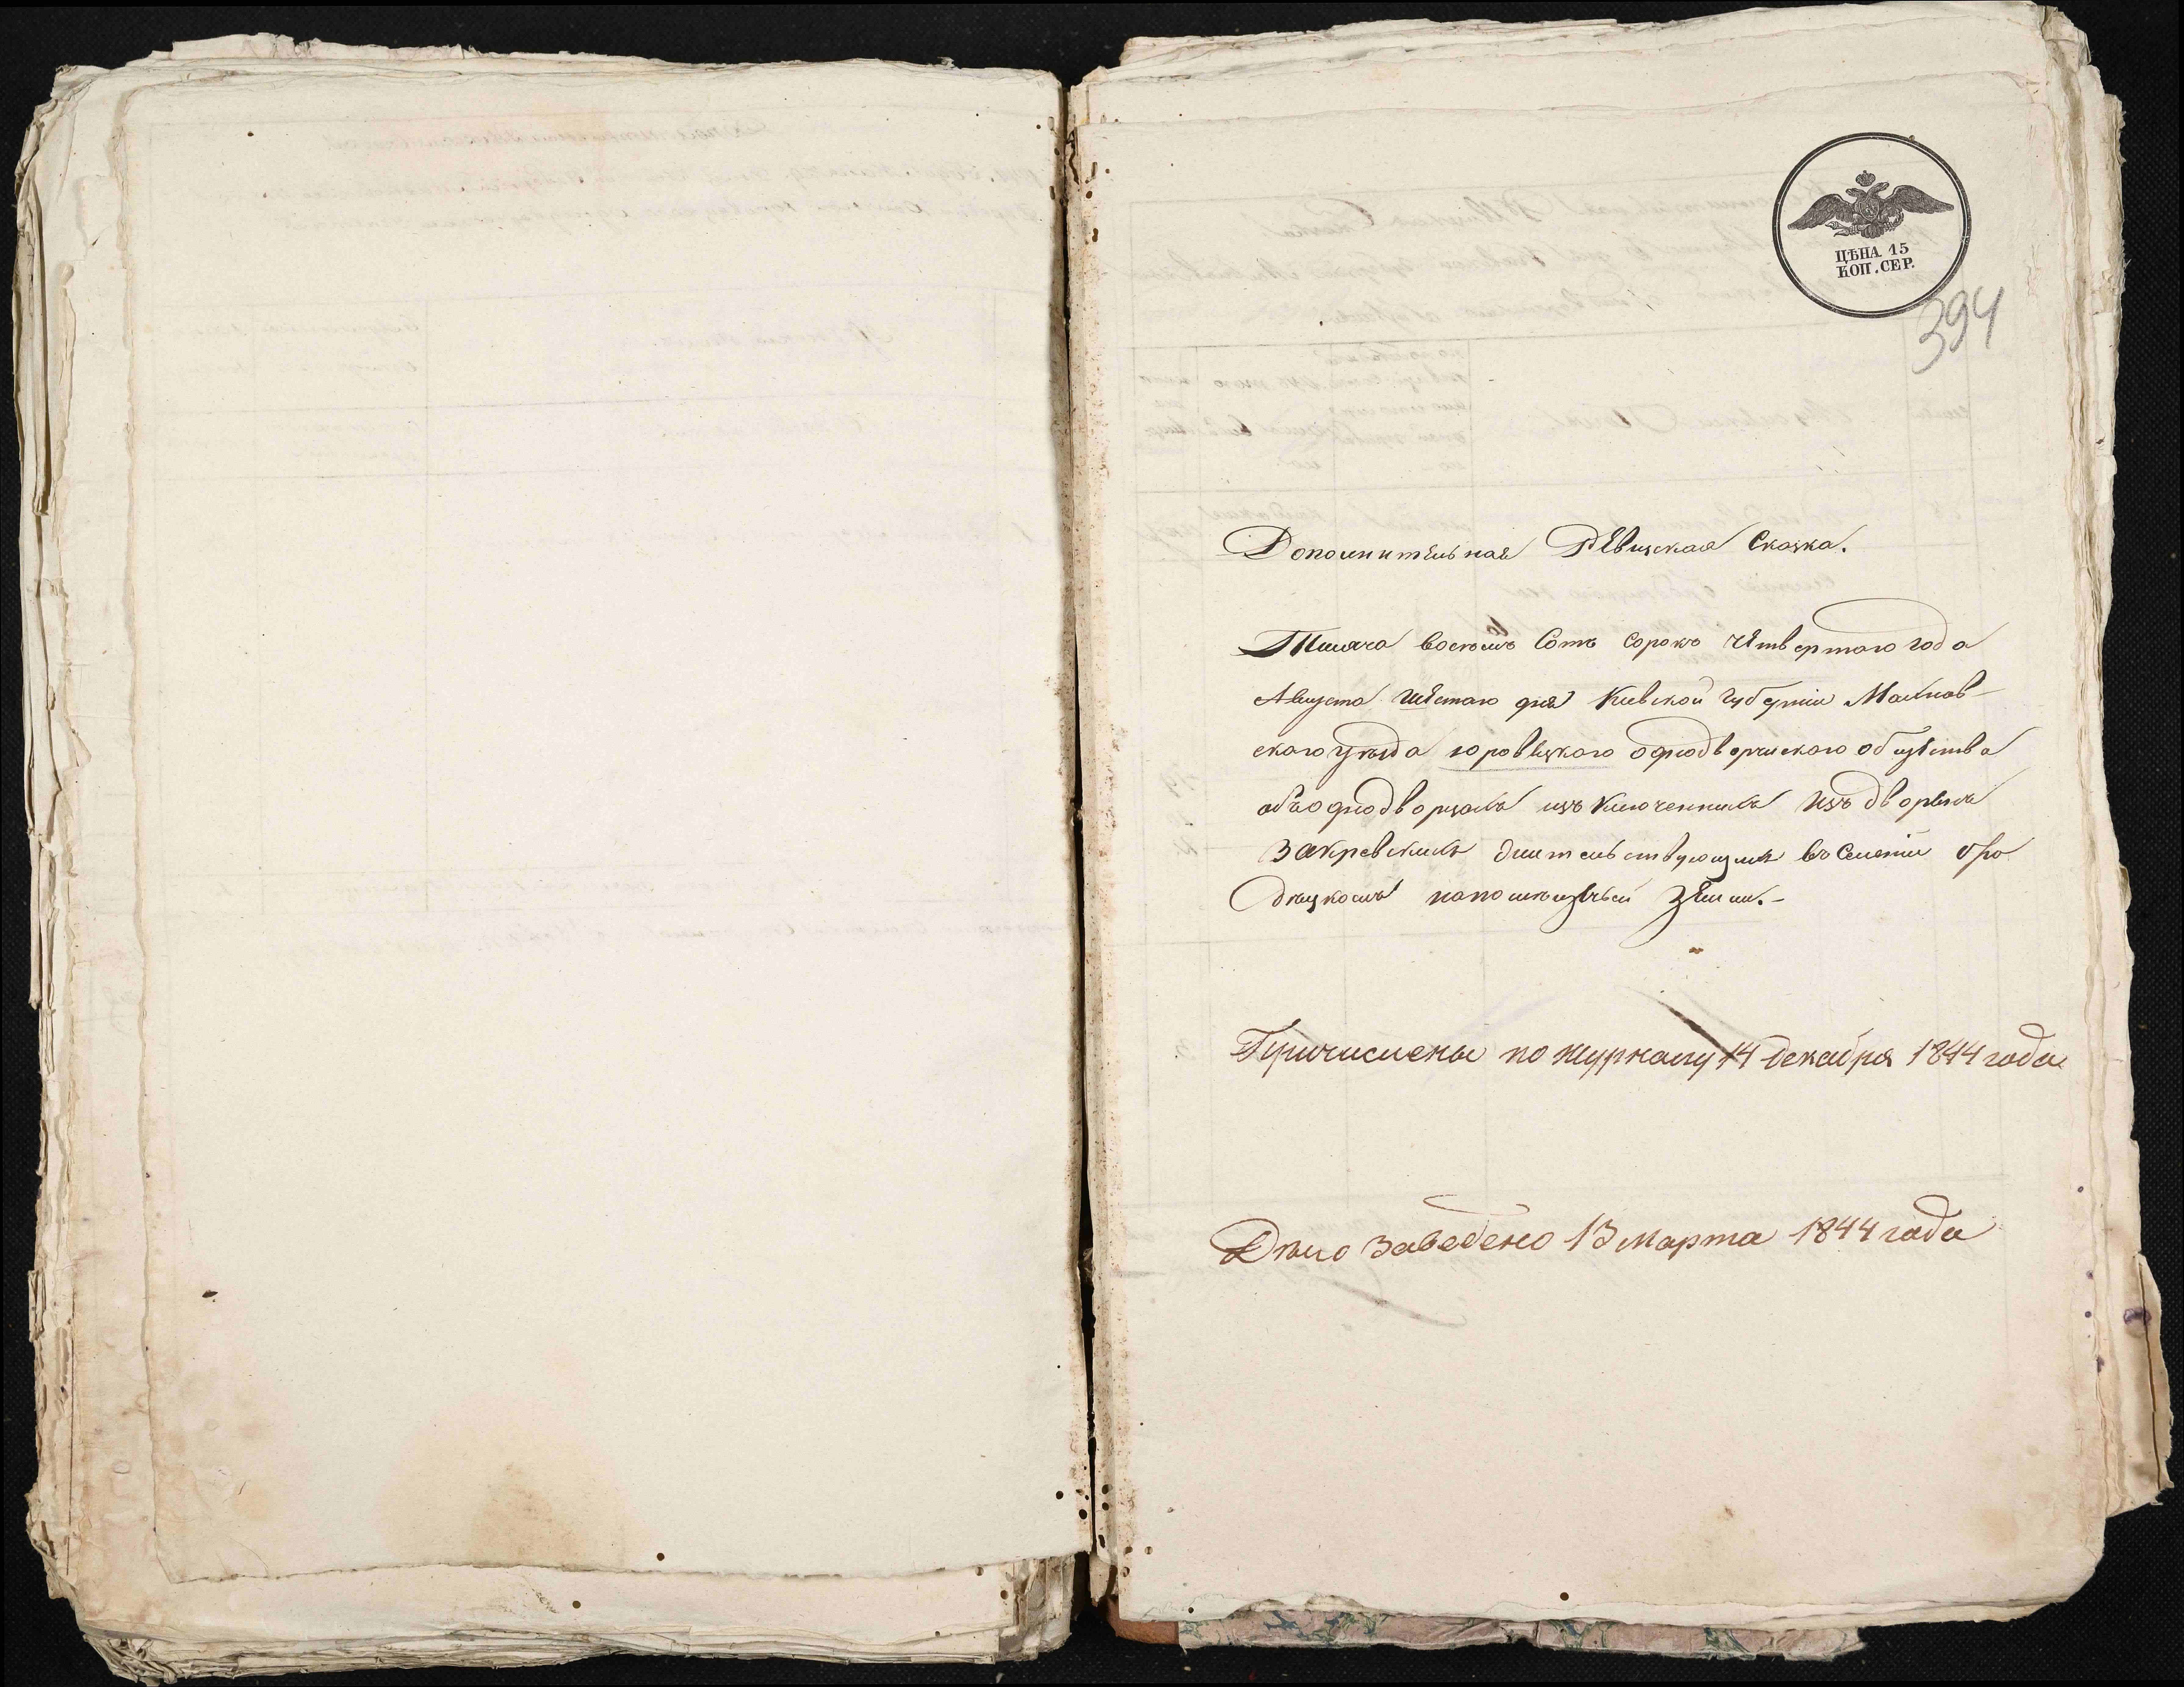 ЦѢНА 15
КОП. СЕР.
394
Дополнительная Ревизская Сказка.
Тысяча восемь сотъ сорокъ четвертаго года
Августа шестаго дня Кіевской Губерніи Махнов-
скаго уѣзда юровецкого однодворческого общества
объ однодворцахъ изъключенныхъ изъ дворянъ
Закревскихъ жительствующихъ въ Селеніи
на помѣщечьей землѣ.-
Причислены по журналу 14 декабря 1844 года
Дѣло заведено 13 марта 1844 года